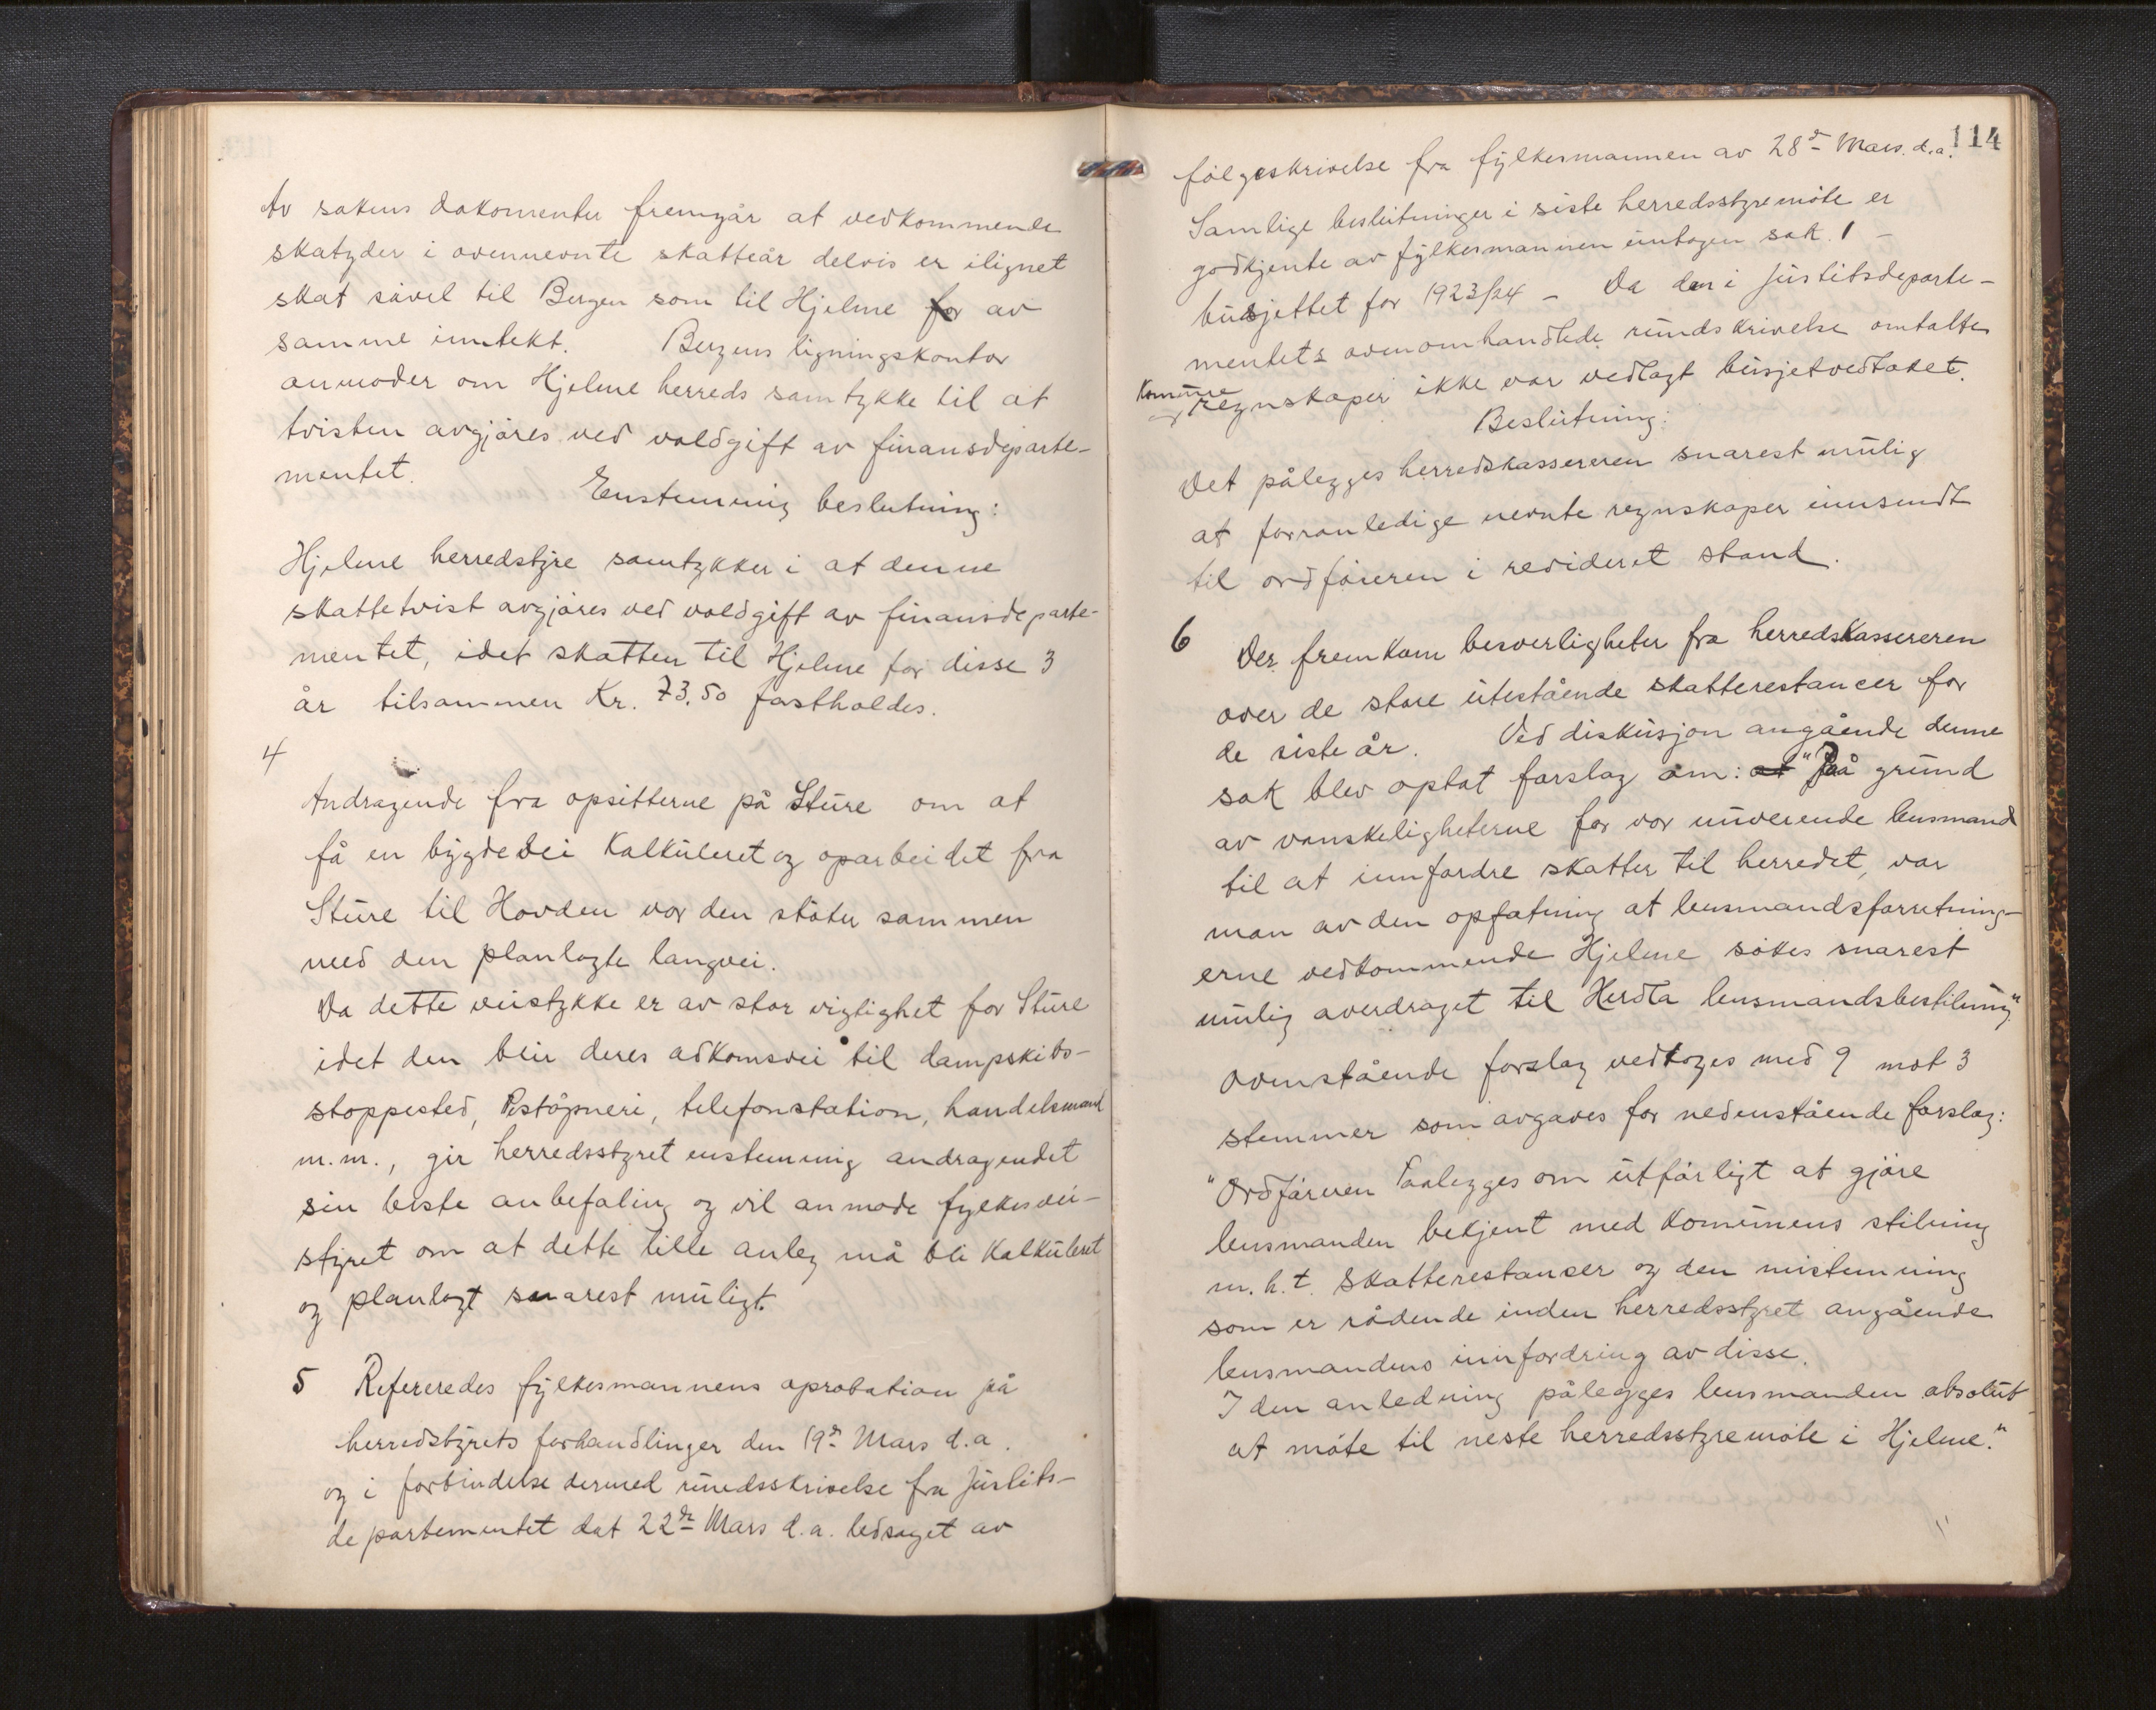 Av sakens dokomenter fremgår at vedkommende
skatyder i ovennevnte skatteår delvis er ilignet
skat såvel til Bergen som til Hjelme for av
samme inntekt. Bergens ligningskontor
anmoder om Hjelme herreds samtykke til at
tvisten avgjøres ved voldgift av finansdeparte-
mentet.
Enstemmig beslutning:
Hjelme herredstyre samtykker i at denne
skattetvist avgjøres ved voldgift av finansdeparte-
mentet, idet skatten til Hjelme for disse 3
år tilsammen Kr. 73,50 fastholdes.
4
Andragende fra opsitterne på Sture om at
få en bygdevei kalkuleret og oparbeidet fra
Sture til Hovden vor den støter sammen
med den planlagte langvei.
Da dette veistykke er av stor vigtighet for Sture
idet den blir deres adkomsvei til dampskibs-
stoppested, Postøpneri, telefonstation, handelsmand
m.m., gir herredsstyret enstemmig andragendet
sin beste anbefaling og vil anmode fylkesvei-
styret om at dette lille anleg må bli kalkuleret
og planlagt snarest muligt.
5 Refereredes fylkesmannens aprobation på
herredstyrets forhandlinger den 19de Mars d.a.
og i forbindelse dermed rundsskrivelse fra Justits-
departementet dat 22de Mars d.a. ledsaget av
114
følgeskrivelse fra fylkesmannen av 28de Mars. d.a.
Samlige beslutninger i siste herredsstyremøte er
godkjente av fylkesmannen undtagen sak. 1 -
budsjettet for 1923/24 - Da den i Justitsdeparte-
mentets ovenomhandlede rundskrivelse omtalte
Komune
regnskaper ikke var vedlagt busjetvedtaket.
Beslutning:
Det pålegges herredskassereren snarest mulig
at forranledige nevnte regnskaper innsendt
til ordføreren i revideret stand.
6 Der fremkom besverligheter fra herredskassereren
over de store utestående skatterestancer for
de siste år. Ved diskusjon angående denne
sak blev optat forslag om: at "På grund
av vanskeligheterne for vor nuverende lensmand
til at innfordre skatter til herredet, var
man av den opfatning at lensmandsforretning-
erne vedkommende Hjelme søkes snarest
mulig averdraget til Herdla lensmandsbestilling"
Ovenstående forslag vedtoges med 9 mot 3
stemmer som avgaves for nedenstående forslag:
"Ordføreren Paalegges om utførligt at gjøre
lensmanden bekjent med Komunens stilling
m.h.t. skatterestanser og den mistemning
som er rådende inden herredsstyret angående
lensmandens innfordring av disse.
I den anledning pålegges lensmanden absolut
at møte til neste herredsstyremøte i Hjelme."